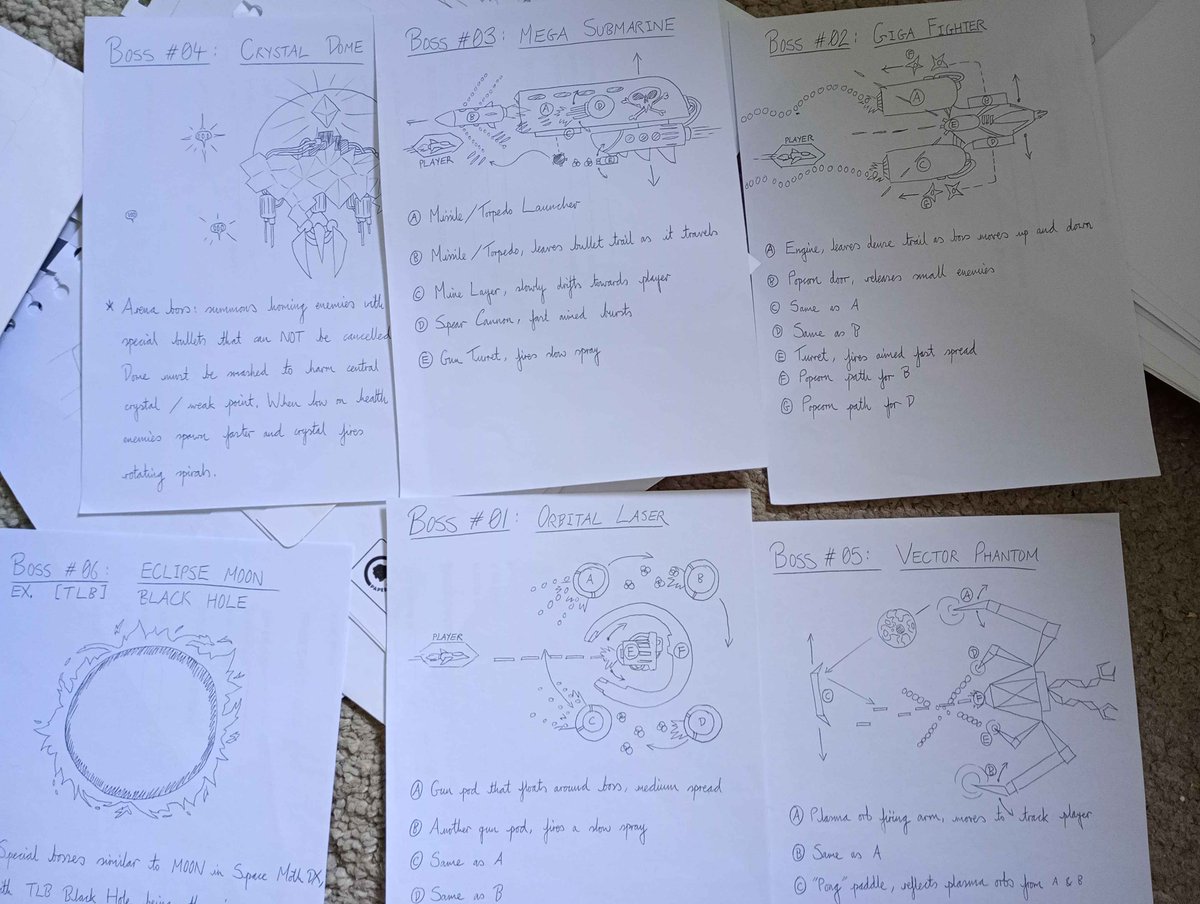 BOSS #04: CRYSTAL DOME
* Arena boss: summons homing enemies with
special bullets that can NOT be cancelled
Dome must be smashed to harm central
crystal / weak point. When low on health
enemies spawn faster and crystal fires
rotating spirals.
BOSS #03: MEGA SUBMARINE
A
B
C
D
E
PLAYER
A Missile/Torpedo Launcher
B Missile/Torpedo, leaves bullet trail as it travels
C Mine Layer, slowly drifts towards player
D Spear Cannon, fast aimed bursts
E Gun Turret, fires slow spray
BOSS #02: GIGA FIGHTER
F
A
B
E
PLAYER
C
D
G
A Engine, leaves dense trail as boss moves up and down
B Popcorn door, releases small enemies
C Same as A
D Same as B
E Turret, fires aimed fast spread
F Popcorn path for B
G Popcorn path for D
BOSS #06: ECLIPSE MOON
EX. [TLB] BLACK HOLE
Special bosses similar to MOON in Space Moth DX,
TLB Black Hole being the
BOSS #01: ORBITAL LASER
A
B
PLAYER
E
F
C
D
A Gun pod that floats around boss, medium spread
B Another gun pod, fires a slow spray
C Same as A
D Same as B
BOSS #05: VECTOR PHANTOM
A
D
C
F
E
B
A Plasma orb firing arm, moves to track player
B Same as A
C "Pong" paddle, reflects plasma orbs from A & B